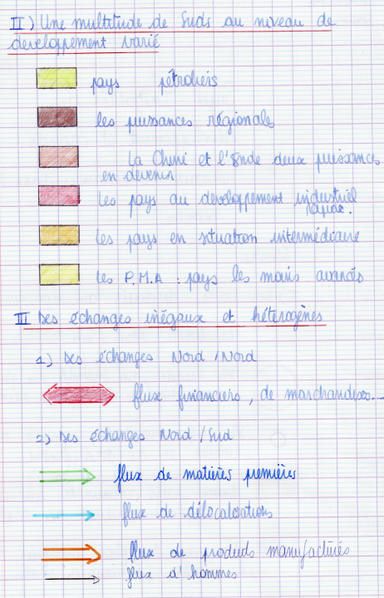 II) Une multitude de Suds au niveau de
developpement varié
pays pétroliers
les puissances régionales
La Chine et l'Inde deux puissances
en devenir
les pays au developpement industriel
rapide.
les pays en situation intermédiaire
les P.M.A : pays les moins avancés
III Des échanges inégaux et hétérogènes
1) Des échanges Nord / Nord
flux financiers, de marchandises...
2) Des échanges Nord / Sud
flux de matières premières
flux de délocalisations
flux de produits manufacturés
flux d'hommes